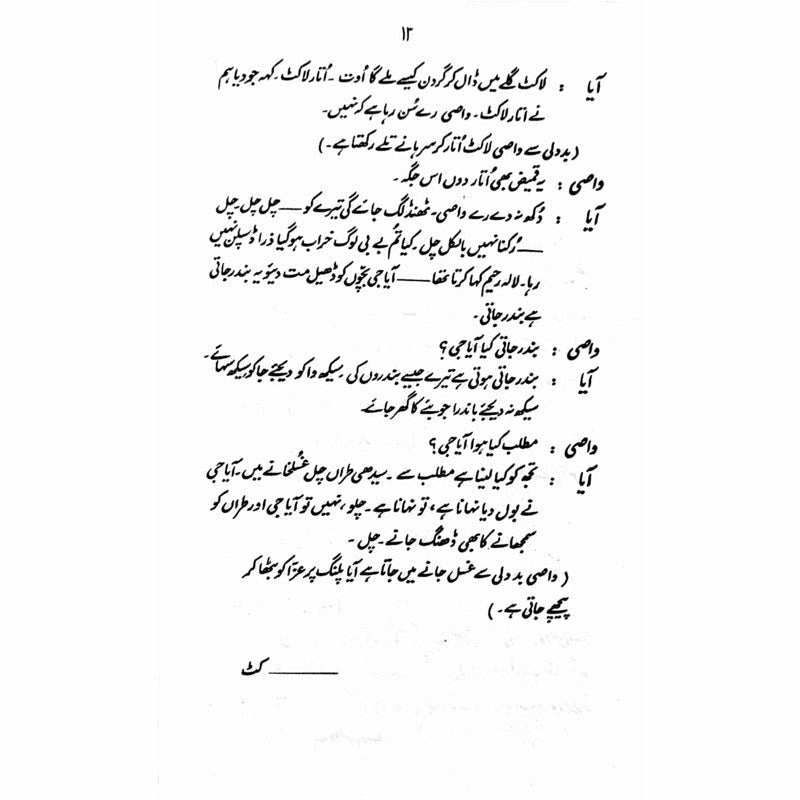 ۱۲
آیا : لاکٹ گلے میں ڈال کر گردن کیسے ملے گا اُوت ۔ اُتار لاکٹ ۔ کہہ جو دیا ہم
نے اتار لاکٹ ۔ واصی رے سُن رہا ہے کہ نہیں ۔
( بددلی سے واصی لاکٹ اُتار کر سرہانے تلے رکھتا ہے ۔ )
واصی : یہ قمیض بھی اُتار دوں اس جگہ ۔
آیا : دُکھ نہ دے رے واصی ۔ ٹھنڈ لگ جائے گی تیرے کو —— چل چل ۔ چل
—— رُکنا نہیں بالکل چل ۔ کیا تُم بے بی لوگ خراب ہو گیا ذرا ڈسپلن نہیں
رہا ۔ لالہ رحیم کہا کرتا تھا —— آیا جی بچّوں کو ڈھیل مت دیئو یہ بندر جاتی
ہے بندر جاتی ۔
واصی : بندر جاتی کیا آیا جی ؟
آیا : بندر جاتی ہوتی ہے تیرے جیسے بندروں کی ۔ سیکھ وا کو دیجئے جا کو سیکھ سہائے ۔
سیکھ نہ دیجئے باندرا جو بئے کا گھر جائے ۔
واصی : مطلب کیا ہوا آیا جی ؟
آیا : تجھ کو کیا لینا ہے مطلب سے ۔ سیدھی طراں چل غُسلخانے میں ۔ آیا جی
نے بول دیا نہانا ہے ، تو نہانا ہے ۔ چلو ، نہیں تو آیا جی اور طراں کو
سمجھانے کا بھی ڈھنگ جانے ۔ چل ۔
( واصی بد دلی سے غسل خانے میں جاتا ہے آیا پلنگ پر عزّا کو بٹھا کر
پیچھے جاتی ہے ۔ )
—— کٹ